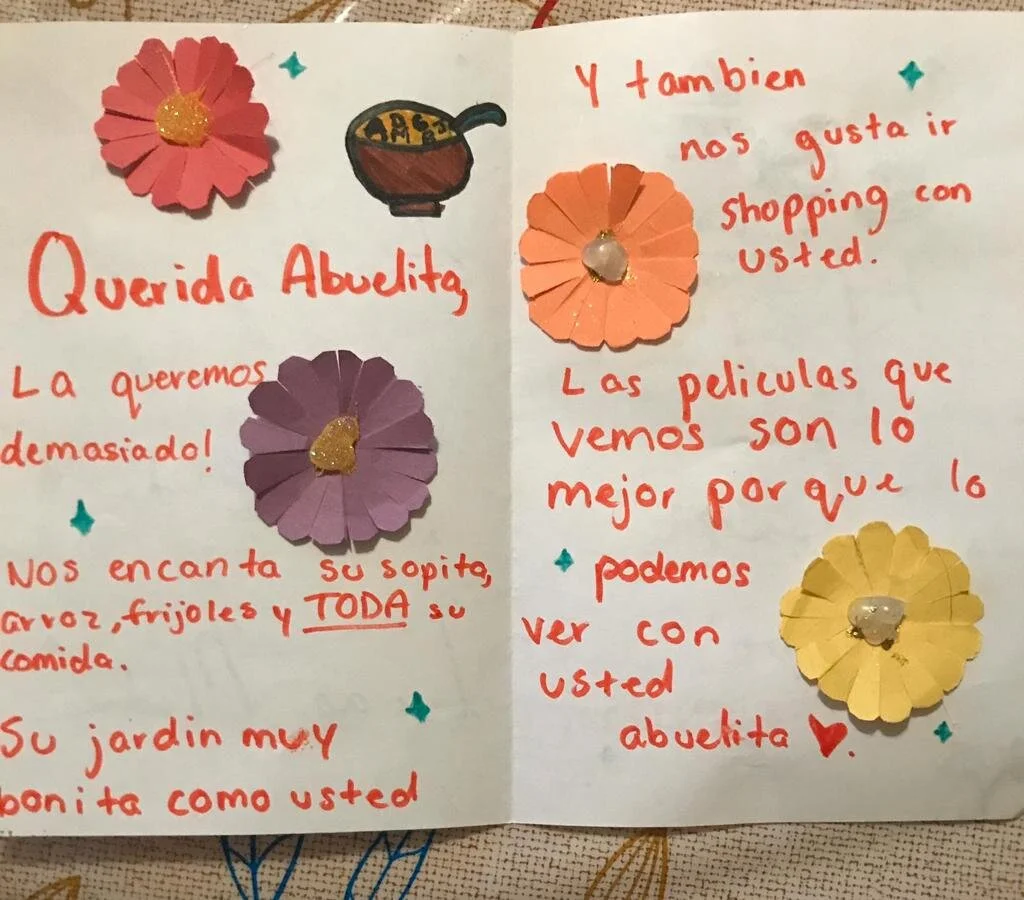 Querida Abuelita,
La queremos
demasiado!
Nos encanta su sopita,
arroz, frijoles y TODA su
comida.
Su jardin muy
bonita como usted
Y tambien
nos gusta ir
shopping con
usted.
Las peliculas que
vemos son lo
mejor porque lo
podemos
ver con
usted
abuelita ♥.